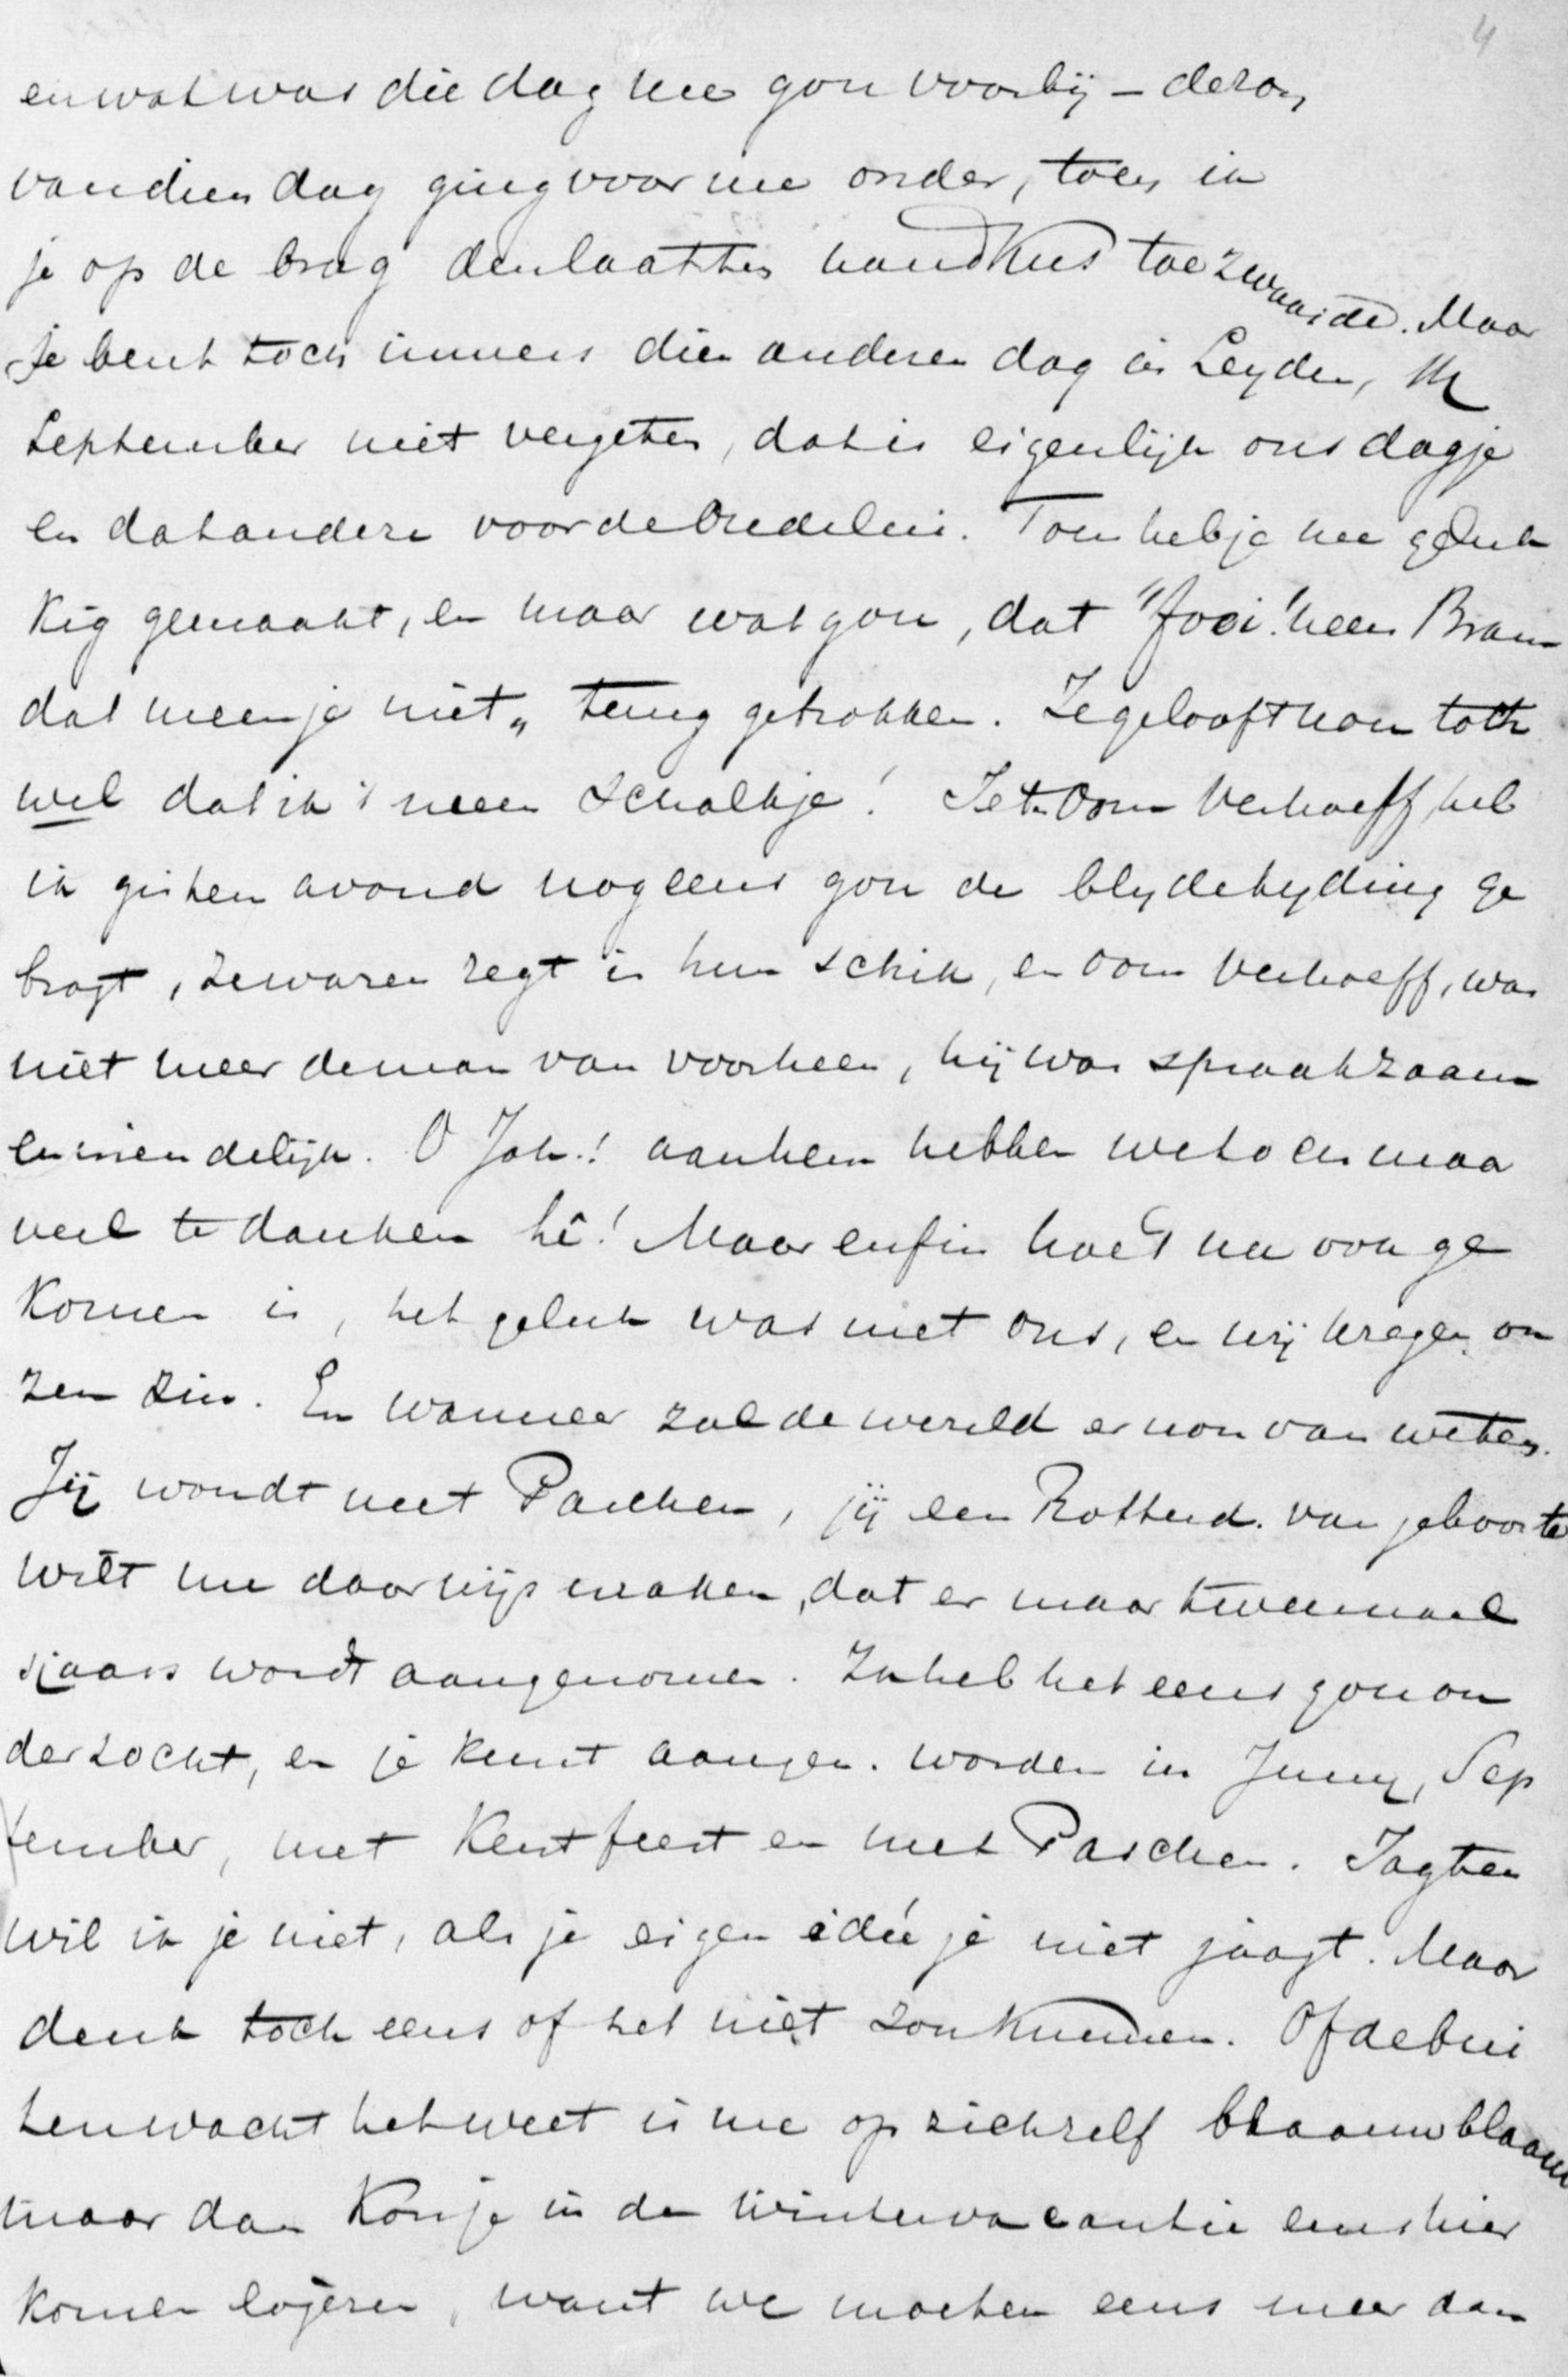 4
en wat was die dag me gou voorbij – de zon
van dien dag ging voor me onder, toen ik
je op de brug den laatsten handkus toezwaaide. Maar
je bent toch immers dien anderen dag in Leyden,
September niet vergeten, dat is eigenlijk ons dagje
en dat andere voor de bredelui. Toen heb je me geluk
kig gemaakt, en maar wat gou, dat "Jooi! neen Bram
dat meen je niet„ terug getrokken. Je gelooft nou toch
wel dat ik 't meen schalkje! Jet en Oom Verhoeff, heb
ik gisteren avond nog eens gou de blyde tyding ge
bragt, ze waren regt in hun schik, en oom Verhoeff, was
niet meer de man van voorheen, hij was spraakzaam
en vriendelijk. O Joh.! aan hem hebben we toen maar
veel te danken hê! Maar enfin hoe 't nu ook ge
komen is, het geluk was met ons, en wij kregen on
zen zin. En wanneer zal de wereld er nou van weten.
Jij wordt met Paschen, jij een Rotterd. van geboorte
wilt me daar wijs maken, dat er maar tweemaal
sjaars wordt aangenomen. Ik heb het eens gou on
derzocht, en je kunt aangen. worden in Juny, Sep
tember, met Kerstfeest en met Paschen. Jagten
wil ik je niet, als je eigen idée je niet jaagt. Maar
denk toch eens of het niet zou kunnen. Of de bui
tenwacht het weet is me op zichzelf blaauw blaauw
maar dan kon je in de wintervacantie eens hier
komen logeren, want we moeten eens meer dan